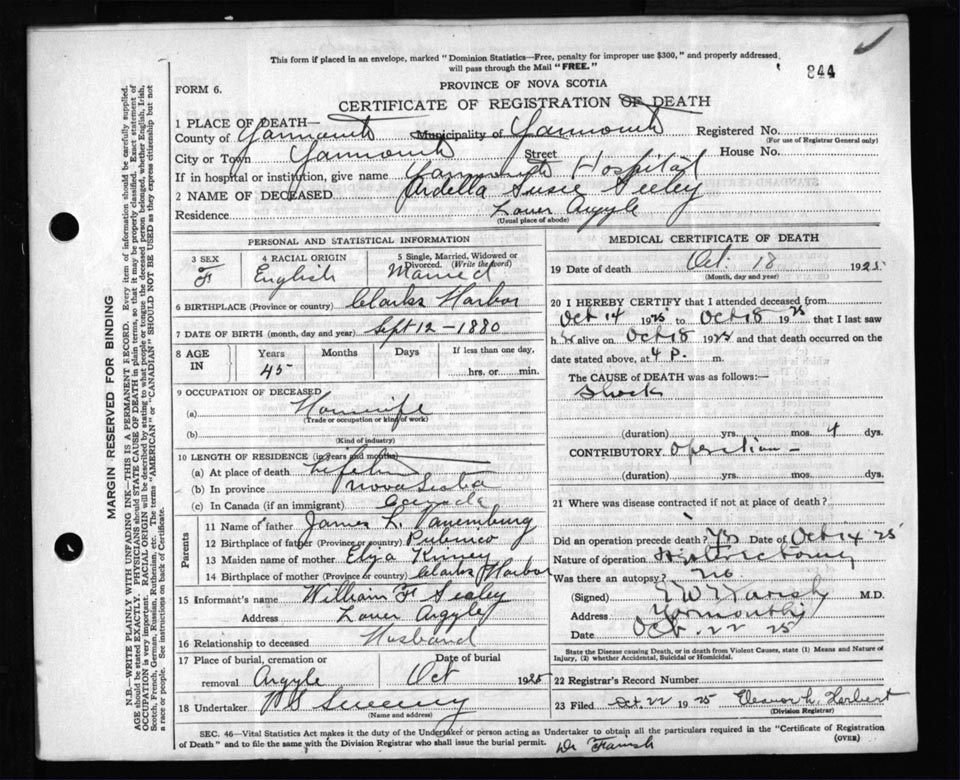 This form if placed in an envelope, marked "Dominion Statistics—Free, penalty for improper use $300," and properly addressed,
will pass through the Mail "FREE."
844
FORM 6.
PROVINCE OF NOVA SCOTIA
CERTIFICATE OF REGISTRATION OF DEATH
1 PLACE OF DEATH—
County of Yarmouth Municipality of Yarmouth Registered No.
(For use of Registrar General only)
City or Town Yarmouth Street House No.
If in hospital or institution, give name Yarmouth Hospital
2 NAME OF DECEASED Ardella Susie Seeley
Residence Lower Argyle
(Usual place of abode)
PERSONAL AND STATISTICAL INFORMATION
3 SEX 4 RACIAL ORIGIN 5 Single, Married, Widowed or
Divorced. (Write the word)
F English Married
6 BIRTHPLACE (Province or country) Clarks Harbor
7 DATE OF BIRTH (month, day and year) Sept 12 - 1880
8 AGE IN Years Months Days If less than one day,
45 hrs. or min.
9 OCCUPATION OF DECEASED
(a) Housewife
(Trade or occupation or kind of work)
(b)
(Kind of industry)
10 LENGTH OF RESIDENCE (in years and months)
(a) At place of death Lifetime
(b) In province Nova Scotia
(c) In Canada (if an immigrant) Canada
Parents
11 Name of father James L. Vanemburg
12 Birthplace of father (Province or country) Pubnico
13 Maiden name of mother Eliza Kinney
14 Birthplace of mother (Province or country) Clarks Harbor
15 Informant's name William F Sealey
Address Lower Argyle
16 Relationship to deceased Husband
17 Place of burial, cremation or Date of burial
removal Argyle Oct 1925
18 Undertaker Sweeny
(Name and address)
MEDICAL CERTIFICATE OF DEATH
19 Date of death Oct. 18 1925
(Month, day and year)
20 I HEREBY CERTIFY that I attended deceased from
Oct 14 1925 to Oct 18 1925 that I last saw
her alive on Oct 18 1925 and that death occurred on the
date stated above, at 4 P. m.
The CAUSE of DEATH was as follows:—
Shock
(duration) yrs. mos. 4 dys.
CONTRIBUTORY Operation -
(duration) yrs. mos. dys.
21 Where was disease contracted if not at place of death?
Did an operation precede death? Yes Date of Oct 14 25
Nature of operation Hysterectomy
Was there an autopsy? no
(Signed) M.D.
Address Yarmouth
Date Oct. 22 25
State the Disease causing Death, or in death from Violent Causes, state (1) Means and Nature of
Injury, (2) whether Accidental, Suicidal or Homicidal.
22 Registrar's Record Number
23 Filed Oct 22 1925 Eleanor L. Herbert
(Division Registrar)
SEC. 46—Vital Statistics Act makes it the duty of the Undertaker or person acting as Undertaker to obtain all the particulars required in the "Certificate of Registration
of Death" and to file the same with the Division Registrar who shall issue the burial permit.
Dr Farish
(OVER)
MARGIN RESERVED FOR BINDING
N.B.—WRITE PLAINLY WITH UNFADING INK—THIS IS A PERMANENT RECORD. Every item of information should be carefully supplied.
AGE should be stated EXACTLY. PHYSICIANS should STATE CAUSE OF DEATH in plain terms, so that it may be properly classified. Exact statement of
OCCUPATION is very important. RACIAL ORIGIN will be described by stating to what people or tongue the deceased person belonged, whether English, Irish,
Scotch, French, German, Russian, Ruthenian, etc. The terms "AMERICAN" or "CANADIAN" SHOULD NOT BE USED as they express citizenship but not
a race or people. See instructions on back of Certificate.